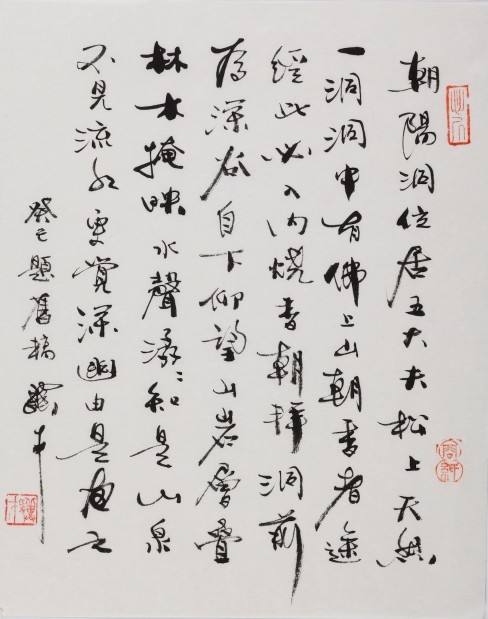 朝陽洞位居五大夫松上天然
一洞洞中有佛上山朝香者途
經此必入内燒香朝拜洞前
為深谷自下仰望山岩層疊
林木掩映水聲潺〻知是山泉
不見流水更覺深幽由是之
癸巳題舊稿